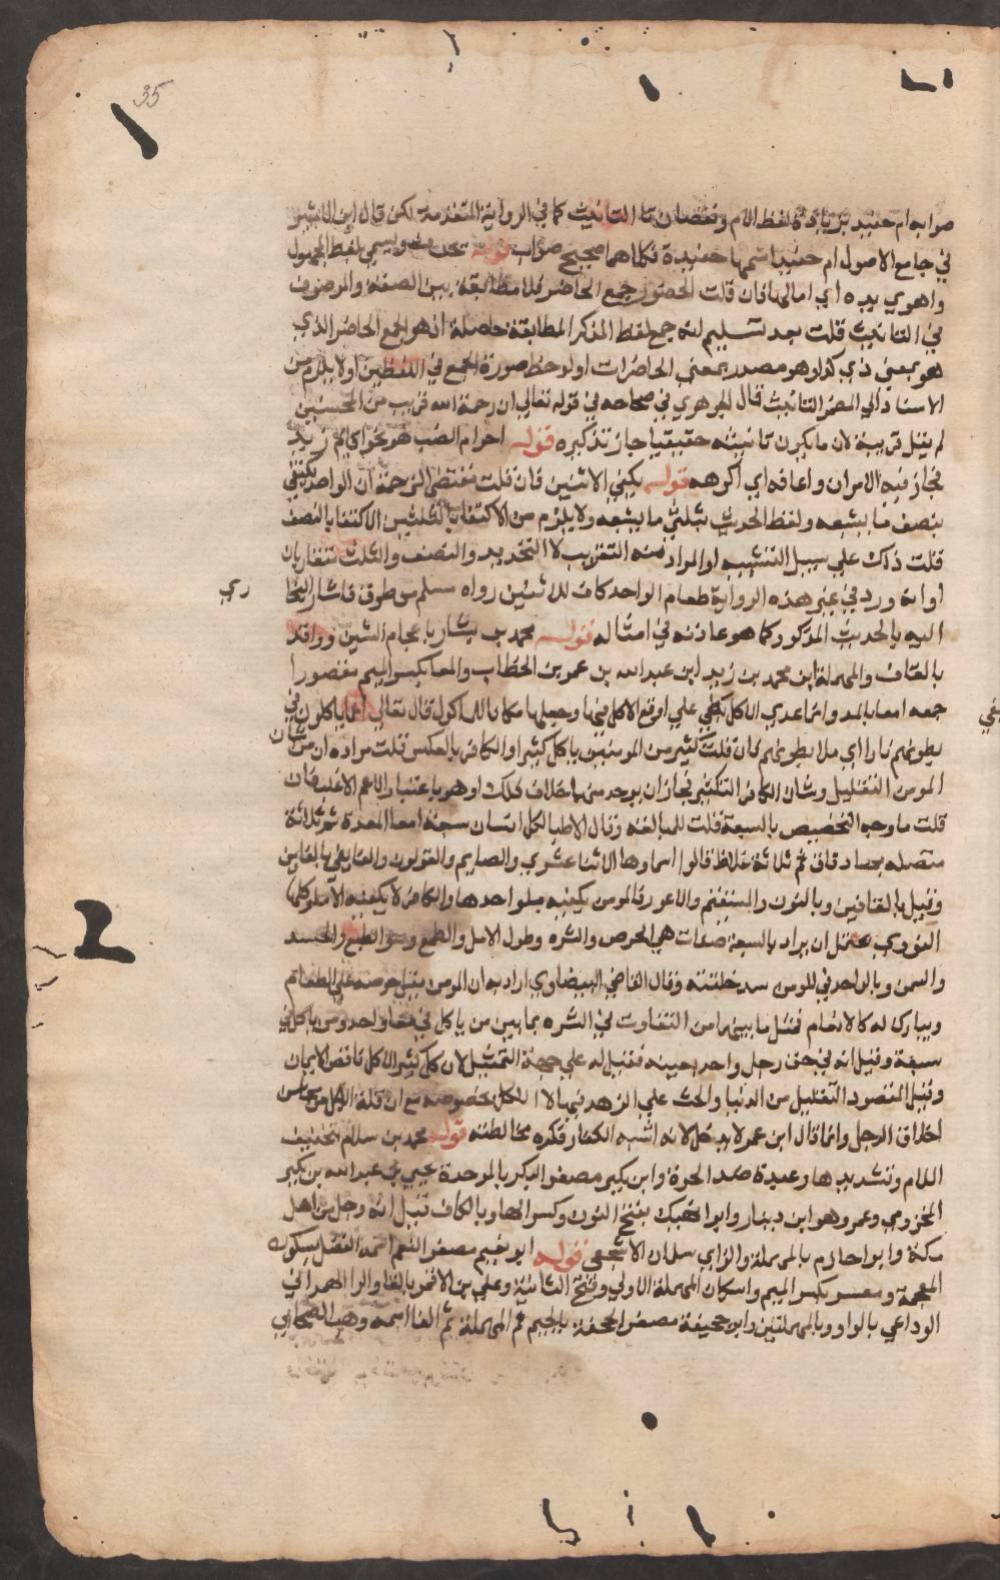 35
صوابه ام حفيد بزيادة لفظ الام ونقصان تا التانيث كما في الرواية المتقدمة لكن قال ابن الاثير
في جامع الاصول ام حفيد اسمها حفيدة فكلاهما صحيح صواب قوله تحت ويسمي لفظ المجهول
واهوي يده اي امالها فان قلت الحضور جمع الحاضر فلا مطابقة بين الصفة والموصوف
في التانيث قلت بعد تسليم انه جمع لفظ المذكر المطابقة حاصلة اذ هو الجمع الحاضر الذي
هو بمعني ذي كذا وهو مصدر بمعني الحاضرات او لوحظ صورة الجمع في اللفظين او لا يلزم من
الاسناد الي المضمر التانيث قال الجوهري في صحاحه في قوله تعالي ان رحمة الله قريب من المحسنين
لم يقل قريبة لان ما يكون تانيثه حقيقيا جاز تذكيره قوله احرام الضب هو نحو اي قم زيد
فجاز فيه الامران واعافه اي اكرهه قوله يكفي الاثنين فان قلت مقتضي الترجمة ان الواحد يكتفي
بنصف ما يشبعه ولفظ الحديث بثلثي ما يشبعه ولا يلزم من الاكتفا بالثلثين الاكتفا بالنصف
قلت ذلك علي سبيل التشبيه او المراد منه التقريب لا التحديد والنصف والثلث متقاربان
او انه ورد في غير هذه الرواية طعام الواحد كاف للاثنين رواه مسلم من طرق فاشار البخا
ري
اليه بالحديث المذكور كما هو عادته في امثاله قوله محمد بن بشار باعجام الشين وواقد
بالقاف والمهملة ابن محمد بن زيد ابن عبد الله بن عمر بن الخطاب والمعا بكسر الميم مقصورا
جمعه امعا بالمد وانما عدي الاكل بفي علي اوقع الاكل فيها وجعلها مكانا للماكول قال تعالي انما ياكلون في
بطونهم نارا اي ملا بطونهم فان قلت كثير من المومنين ياكل كثيرا والكافر بالعكس قلت مراده ان من شان
المومن التقليل وشان الكافر التكثير فجاز ان يوجد منهما خلاف ذلك او هو باعتبار الاعم الاغلب فان
قلت ما وجه التخصيص بالسبعة قلت للمبالغة وقال الاطبا لكل انسان سبعة امعا المعدة ثم ثلاثة
متصلة بها رقاق ثم ثلاثة غلاظ قالوا اسماوها الاثنا عشري والصايم والقولون والفايفي بالفاين
وقيل بالقافين وبالنون والمستقيم والاعور فالمومن يكفيه ملو احدها والكافر لا يكفيه الا ملو كلها
النووي يحتمل ان يراد بالسبعة صفات هي الحرص والشره وطول الامل والطمع وسو الطبع والحسد
والسمن وبالواحد في المومن سد خلته وقال القاضي البيضاوي اراد به ان المومن يقل حرصه علي الطعام
ويبارك له كالانعام فمثل ما بينهما من التفاوت في الشره بما بين من ياكل في معا واحد ومن ياكل في
سبعة وقيل انه في حق رجل واحد بعينه فقيل له علي جهة التمثيل لان كل كثير الاكل ناقص الايمان
وقيل المقصود التقليل من الدنيا والحث علي الزهد فيها لا الاكل بخصوصه مع ان قلة الاكل من محاسن
اخلاق الرجل وانما قال ابن عمر لا يدخل لانه اشبه الكفار فكره مخالطته قوله محمد بن سلام بتخفيف
اللام وتشديدها وعبدة ضد الحرة وابن بكير مصغر البكر بالموحدة يحيي بن عبد الله بن بكير
المخزومي وعمرو هو ابن دينار وابو نهيك بفتح النون وكسر الها وبالكاف قيل انه رجل من اهل
مكة وابو حازم بالمهملة والزاي سلمان الاشجعي قوله ابو نعيم مصغر النعم اسمه الفضل بسكون
المعجمة ومسعر بكسر الميم واسكان المهملة الاولي وفتح الثانية وعلي بن الاقمر بالقاف والرا الهمداني
الوداعي بالواو وبالمهملتين وابو جحيفة مصغر الجحفة بالجيم ثم المهملة ثم الفا اسمه وهب الصحابي